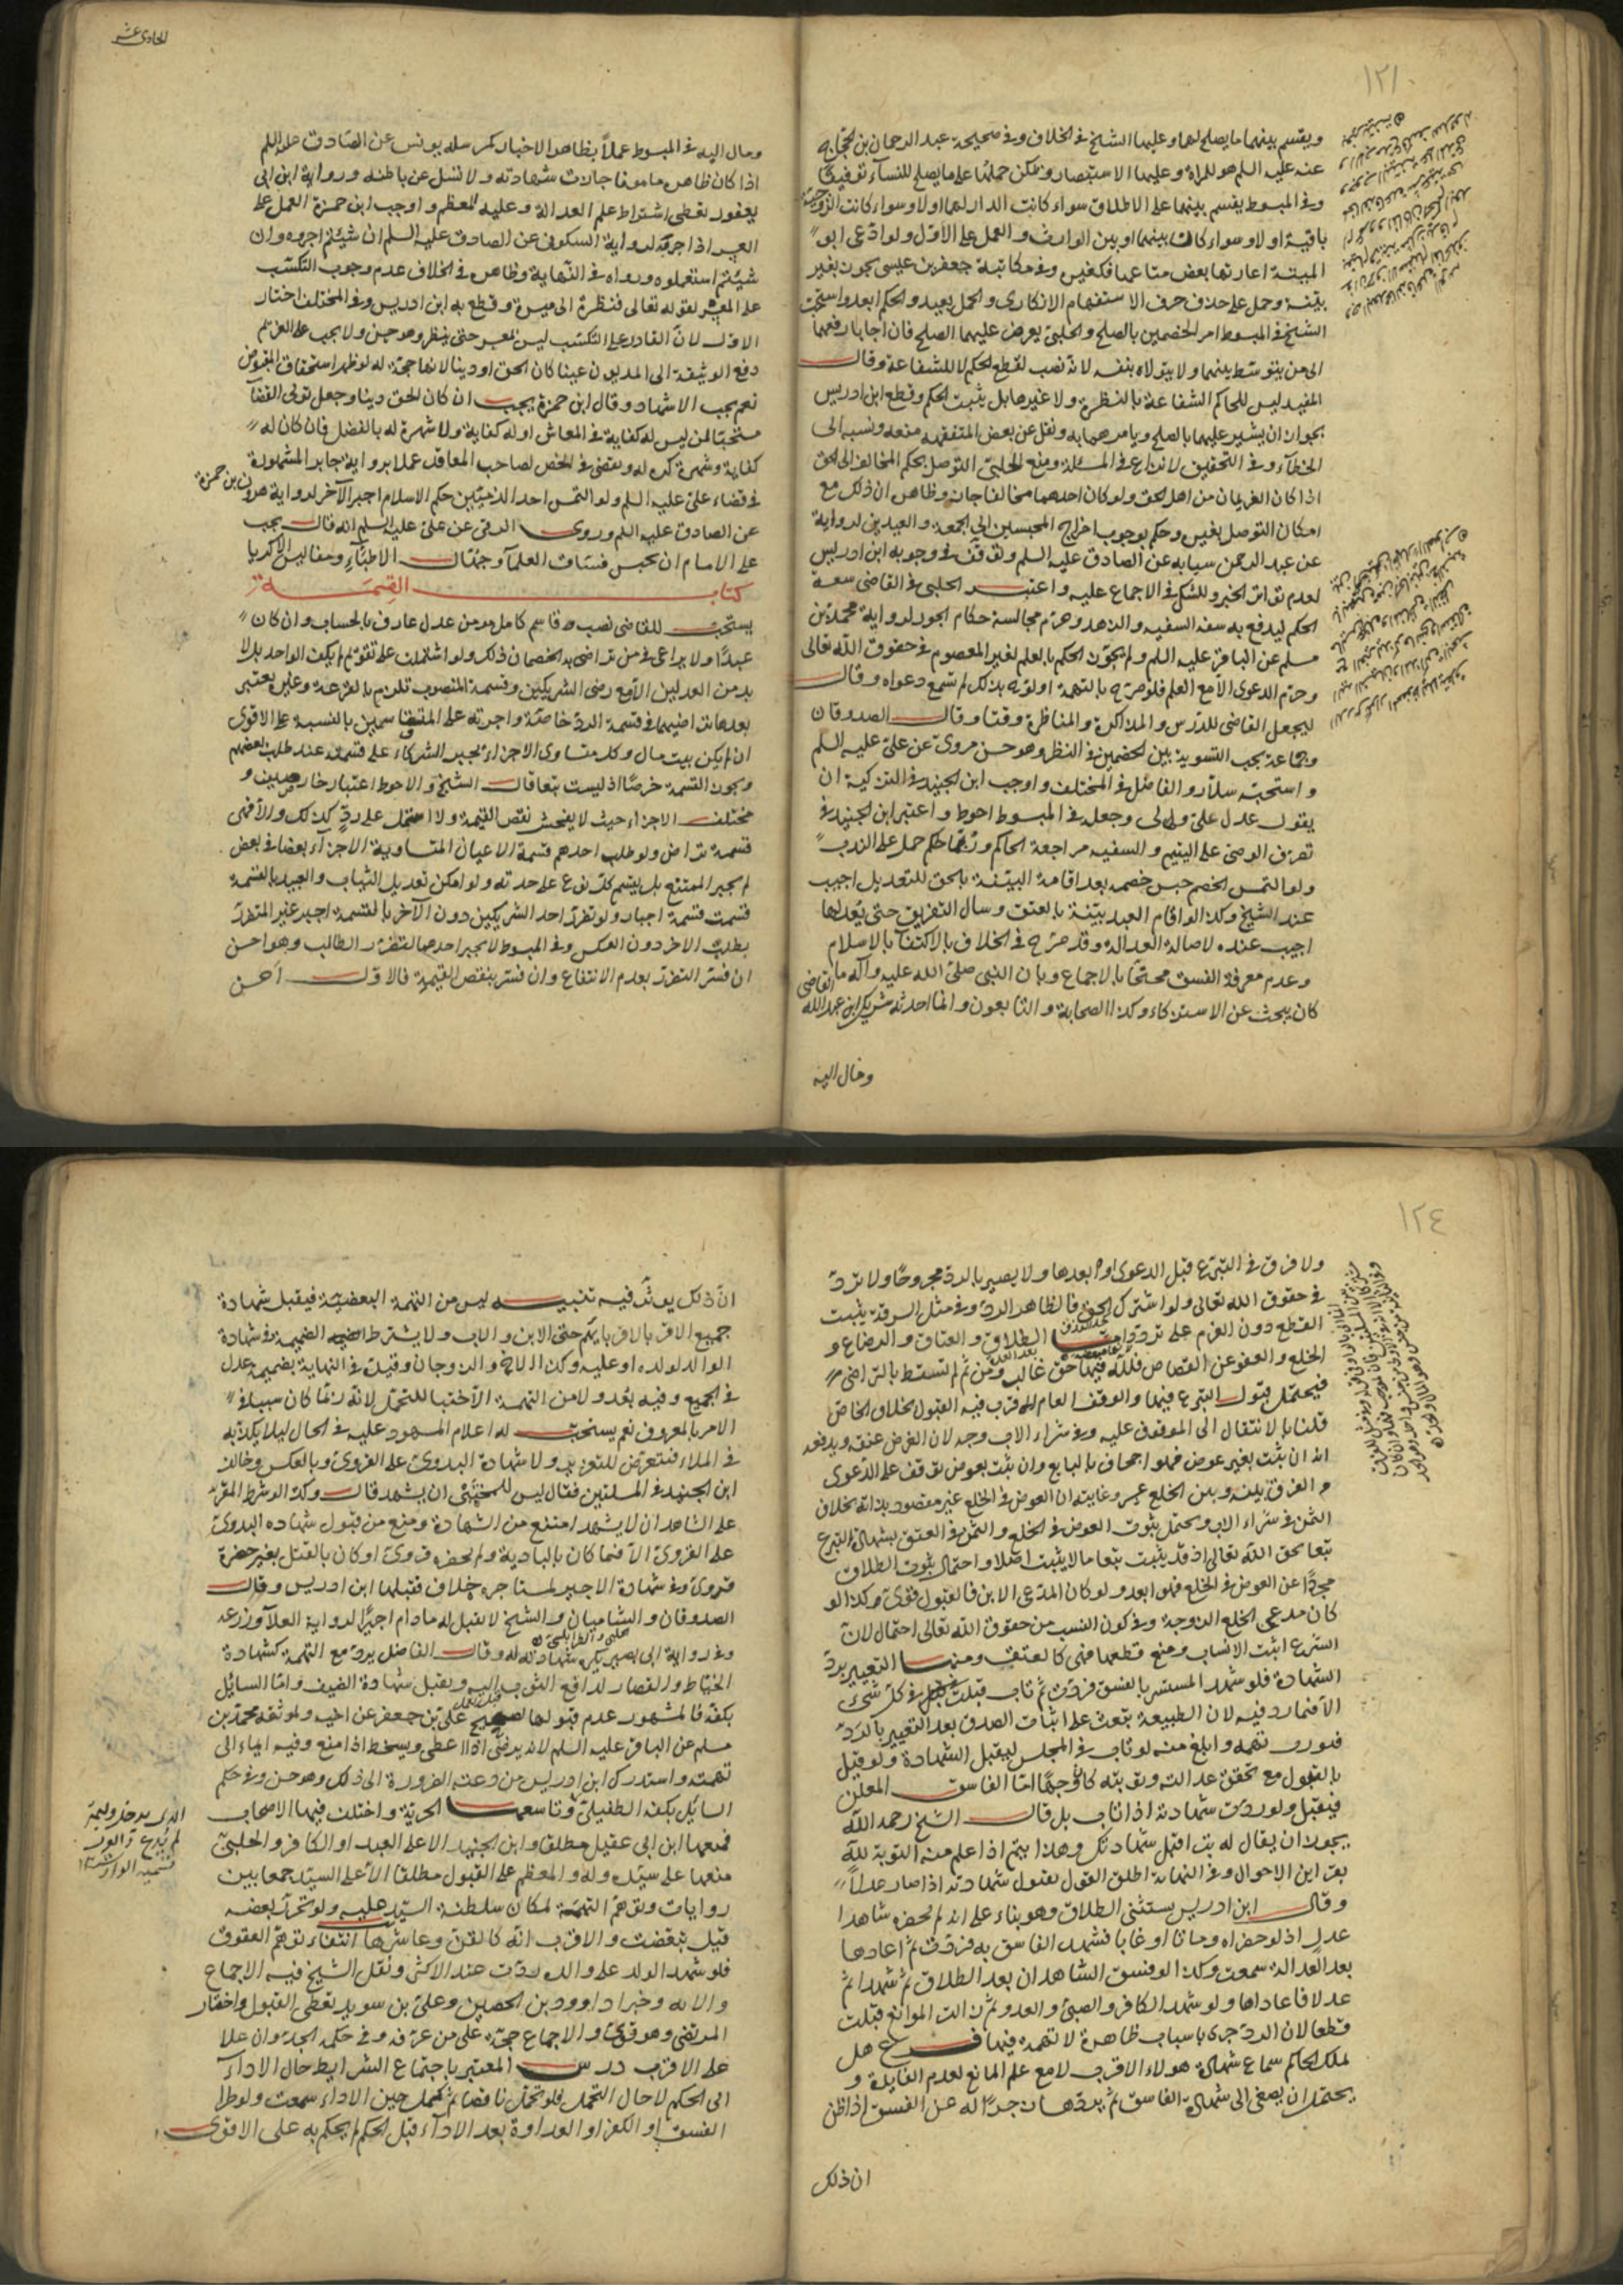 ١٢١
ويقسم بينهما ما يصلح لهما وعليها الشيخ في الخلاف وفي صحيحة عبد الرحمان بن الحجاج
عنه عليه السلم هو للمرأة وعليها الاستبصار ويمكن حملها على ما يصلح للنساء توفيقا
وفي المبسوط يقسم بينهما على الاطلاق سواء كانت الدار لهما اولا وسواء كانت الزوجية
باقية اولا وسواء كان بينهما او بين الوارث والعمل على الاول ولو ادعى ابو
الميتة اعارتها بعض متاعها فكغيره وفي مكاتبة جعفر بن عيسى يجوز بغير
بينة وحمل على حذف حرف الاستفهام الانكاري والحمل بعيد والحكم ابعد واستحب
الشيخ في المبسوط امر الخصمين بالصلح والحلبي يعرض عليهما الصلح فان اجابا رفعهما
الى من يتوسط بينهما ولا يتولاه بنفسه لانه نصب لقطع الحكم لا للشفاعة وقال
المفيد ليس للحاكم الشفاعة بالنظرة ولا غيرها بل يثبت الحكم وقطع ابن ادريس
بجواز ان يشير عليهما بالصلح ويامرهما به ونقل عن بعض المتفقهة منعه ونسبه الى
الخطاء وفي التحقيق لا نزاع في المسئلة ومنع الحلبي التوصل بحكم المخالف الى الحق
اذا كان الغريمان من اهل الحق ولو كان احدهما مخالفا جاز وظاهره ان ذلك مع
امكان التوصل بغيره وحكم بوجوب اخراج المحبسين الى الجمعة والعيدين لرواية
عن عبد الرحمن سيابه عن الصادق عليه السلم وتوقف في وجوبه ابن ادريس
لعدم تواتر الخبر وللشك في الاجماع عليه واعتبر الحلبي في القاضي سعة
الحكم ليدفع به سفه السفيه والزهد وحرم مجالسة حكام الجور لرواية محمد بن
مسلم عن الباقر عليه السلم ولم يجوز الحكم بالعلم لغير المعصوم في حقوق الله تعالى
وحرم الدعوى الا مع العلم فلو صرح بالتهمة او لوّح بذلك لم تسمع دعواه وقال
ليجعل القاضي للدرس والمذاكرة والمناظرة وقتا وقال الصدوقان
وجماعة يجب التسوية بين الخصمين في النظر وهو حسن مروي عن علي عليه السلم
واستحبه سلار والفاضل في المختلف واوجب ابن الجنيد في التزكية ان
يقول عدل علي ولي وجعله في المبسوط احوط واعتبر ابن الجنيد في
تصرف الوصي على اليتيم والسفيه مراجعة الحاكم وربما حمل على الندب
ولو التمس الخصم حبس خصمه بعد اقامة البينة بالحق للتعديل اجيب
عند الشيخ وكذا لو اقام العبد بينة بالعتق وسال التفريق حتى يعدلها
اجيب عنده لاصالة العدالة وقد صرح في الخلاف بالاكتفاء بالاسلام
وعدم معرفة الفسق محتجا بالاجماع وبان النبي صلى الله عليه وآله ما
كان يبحث عن الاستزكاء وكذا الصحابة والتابعون وانما احدثه شريك بن عبد الله القاضي
ومال اليه
الحادي عشر
ومال اليه في المبسوط عملا بظاهر الاخبار كمرسلة يونس عن الصادق عليه السلم
اذا كان ظاهره مامونا جازت شهادته ولا تسئل عن باطنه ورواية ابن ابي
يعفور تعطي اشتراط علم العدالة وعليه المعظم واوجب ابن حمزة العمل على
المعسر اذا حرفة لرواية السكوني عن الصادق عليه السلم ان شيئتم اجروه وان
شيئتم استعملوه ورواه في النهاية وظاهره في الخلاف عدم وجوب التكسب
على المعسر لقوله تعالى فنظرة الى ميسرة وقطع به ابن ادريس وفي المختلف اختار
الاول لان القادر على التكسب ليس بمعسر حتى ينظر وهو حسن ولا يجب على الغريم
دفع الوثيقة الى المديون عينا كان الحق او دينا لانها حجة له لو ظهر استحقاق المقبوض
نعم يجب الاشهاد وقال ابن حمزة يجب ان كان الحق دينا وجعل تولى القضا
مستحبا لمن ليس له كفاية في المعاش او له كفاية ولا شهرة له بالفضل فان كان له
كفاية وشهرة كره له ويقضى في الخص لصاحب المعاقد عملا برواية جابر المشهورة
في قضاء علي عليه السلم ولو التمس احد الذميين حكم الاسلام اجبر الآخر لرواية هرون بن حمزة
عن الصادق عليه السلم وروى البرقي عن علي عليه السلم انه قال يجب
على الامام ان يحبس فساق العلماء وجهال الاطباء ومفاليس الاكرياء
كتاب القسمة
يستحب للقاضي نصب قاسم كامل مومن عدل عارف بالحساب وان كان
عبدا ولا يراعى في من تراضى به الخصمان ذلك ولو اشتملت على تقويم لم يكف الواحد بل لا
بد من العدلين الا مع رضى الشريكين وقسمة المنصوب تلزم بالقرعة وغيره يعتبر
بعدها تراضيهما في قسمة الرد خاصة واجرته على المتقاسمين بالنسبة على الاقوى
ان لم يكن بيت مال وكل متساوي الاجزاء يجبر الشركاء على قسمته عند طلب بعضهم
ويجوز القسمة خرصا اذ ليست بيعا قال الشيخ والاحوط اعتبار خارصين و
مختلف الاجزاء حيث لا يفحش نقص القيمة ولا اشتمل على رد كذلك والا فهي
قسمة تراض ولو طلب احدهم قسمة الاعيان المتساوية الاجزاء بعضا في بعض
لم يجبر الممتنع بل يقسم كل نوع على حدته ولو امكن تعديل الثياب والعبيد بالقسمة
قسمت قسمة اجبار ولو تضرر احد الشريكين دون الآخر بالقسمة اجبر غير المتضرر
بطلب الاخر دون العكس وفي المبسوط لا يجبر احدهما لتضرر الطالب وهو احسن
ان فسر التضرر بعدم الانتفاع وان فسر بنقص القيمة فالاول احسن
١٢٤
ولا فرق في التبرع قبل الدعوى او بعدها ولا يصير بالرد مجروحا ولا ترد
في حقوق الله تعالى ولو اشترك الحق فالظاهر الرد وفي مثل السرقة يثبت
القطع دون الغرم على تردد اما الطلاق والعتاق والرضاع و
الخلع والعفو عن القصاص فلله فيها حق غالب ومن ثم لم تسقط بالتراضي
فيحتمل قبول التبرع فيها والوقف العام اقرب فيه القبول بخلاف الخاص ان
قلنا بالانتقال الى الموقوف عليه وفي شراء الاب وجه لان الغرض عتقه ويدفعه
انه ان ثبت بغير عوض فهو اجحاف بالبايع وان ثبت بعوض توقف على الدعوى
والفرق بينه وبين الخلع عسر وغايته ان العوض في الخلع غير مقصود بذاته بخلاف
الثمن في شراء الاب ويحتمل ثبوت العوض في الخلع والثمن في العتق بشهادة التبرع
تبعا لحق الله تعالى اذ قد يثبت تبعا ما لا يثبت اصلا واحتمال ثبوت الطلاق
مجردا عن العوض في الخلع فهو ابعد ولو كان المدعي الابن فالقبول قوي وكذا لو
كان مدعي الخلع الزوجة وفي كون النسب من حقوق الله تعالى احتمال لان
الشرع اثبت الانساب ومنع قطعها فهي كالعتق ومنها التعيير برد
الشهادة فلو شهد المستتر بالفسق فردت ثم تاب قبلت في كل شيء
الا فيما رد فيه لان الطبيعة تبعث على اثبات الصدق بعد التعيير بالرد
فيورث تهمة وابلغ منه لو تاب في المجلس ليقبل الشهادة ولو قيل
بالقبول مع تحقق عدالته وتوبته كان وجها اما الفاسق المعلن
فيقبل ولو ردت شهادته اذا تاب بل قال الشيخ رحمه الله
يجوز ان يقال له تب اقبل شهادتك وهذا يتم اذا علم منه التوبة لله
بقراين الاحوال وفي النهاية اطلق القول بقبول شهادته اذا صار عدلا
وقال ابن ادريس يستثنى الطلاق وهو بناء على انه لم يحضره شاهدا
عدل اذ لو حضراه وماتا او غابا فشهد الفاسق به فردت ثم اعادها
بعد العدالة سمعت وكذا لو فسق الشاهدان بعد الطلاق ثم شهدا ثم
عدلا فاعاداها ولو شهد الكافر والصبي والعدو ثم زالت الموانع قبلت
قطعا لان الرد جرى باسباب ظاهرة لا تهمة فيها فرع هل
لملك الحاكم سماع شهادة هولاء الاقرب لا مع علم المانع لعدم الفايدة و
يحتمل ان يصغى الى شهادة الفاسق ثم يردها زجرا له عن الفسق اذا ظن
ان ذلك
ان ذلك يوثر فيه تنبيه ليس من التهمة البعضية فيقبل شهادة
جميع الاقرباء لاقربايهم حتى الابن والاب ولا يشترط الضميمة في شهادة
الوالد لولده او عليه وكذا الاخ والزوجان وقيد في النهاية بضميمة عدل
في الجميع وفيه بعد ولا من التهمة الاختبا للتحمل لانه ربما كان سبيلا
الامر بالمعروف نعم يستحب له اعلام المشهود عليه في الحال ليلا يكذبه
في الملاء فيتعرض للتعزير ولا شهادة البدوي على القروي وبالعكس وخالف
ابن الجنيد في المسلتين فقال ليس للمختبئ ان يشهد قال وكذا لو شرط المقر
على الشاهد ان لا يشهد امتنع من الشهادة ومنع من قبول شهاده البدوي
على القروي الا فيما كان بالبادية ولم يحضره قروي او كان بالقتل بغير حضرة
قروي وفي شهادة الاجير لمستاجره خلاف فقبلها ابن ادريس وقال
الصدوقان والشاميان والشيخ لا تقبل له ما دام اجيرا لرواية العلا وزرعه
وفي رواية ابي بصير يكره شهادته له وقال الفاضل يرد مع التهمة كشهادة
الخياط والقصار لدافع الثوب اليه ويقبل شهادة الضيف واما السائل
بكفه فالمشهور عدم قبولها لصحيح علي بن جعفر عن اخيه ولموثقه محمد بن
مسلم عن الباقر عليه السلم لانه يرضى اذا اعطي ويسخط اذا منع وفيه ايماء الى
تهمته واستدرك ابن ادريس من دعته الضرورة الى ذلك وهو حسن وفي حكم
السائل بكفه الطفيلي وتاسعها الحرية واختلف فيها الاصحاب
فمنعها ابن ابي عقيل مطلقا وابن الجنيد الا على العبد او الكافر والحلبي
منعها على سيده وله والمعظم على القبول مطلقا الا على السيد جمعا بين
روايات وتوهم التهمة لمكان سلطنة السيد عليه ولو تحرر بعضه
قيل تبعضت والاقرب انه كالقن وعاشرها انتفاء توهم العقوق
فلو شهد الولد على والده ردت عند الاكثر ونقل الشيخ فيه الاجماع
والآية وخبر داوود بن الحصين وعلي بن سويد تعطي القبول واختار
المرتضى وهو قوي والاجماع حجة على من عرفه وفي حكمه الجد وان علا
على الاقرب درس المعتبر باجتماع الشرايط حال الاداء
الى الحكم لا حال التحمل فلو تحمل ناقصا ثم كمل حين الاداء سمعت ولو طرا
الفسق او الكفر او العداوة بعد الاداء قبل الحكم لم يحكم به على الاقوى